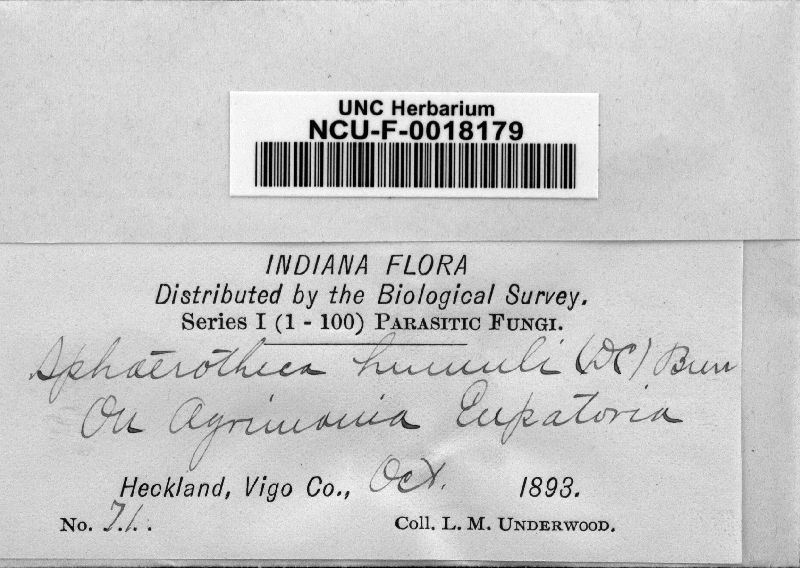 UNC Herbarium
NCU-F-0018179
INDIANA FLORA
Distributed by the Biological Survey.
Series I (1 - 100) PARASITIC FUNGI.
Sphaerotheca humuli (DC) Burr
On Agrimonia Eupatoria
Heckland, Vigo Co., Oct. 1893.
No. 71. Coll. L. M. UNDERWOOD.